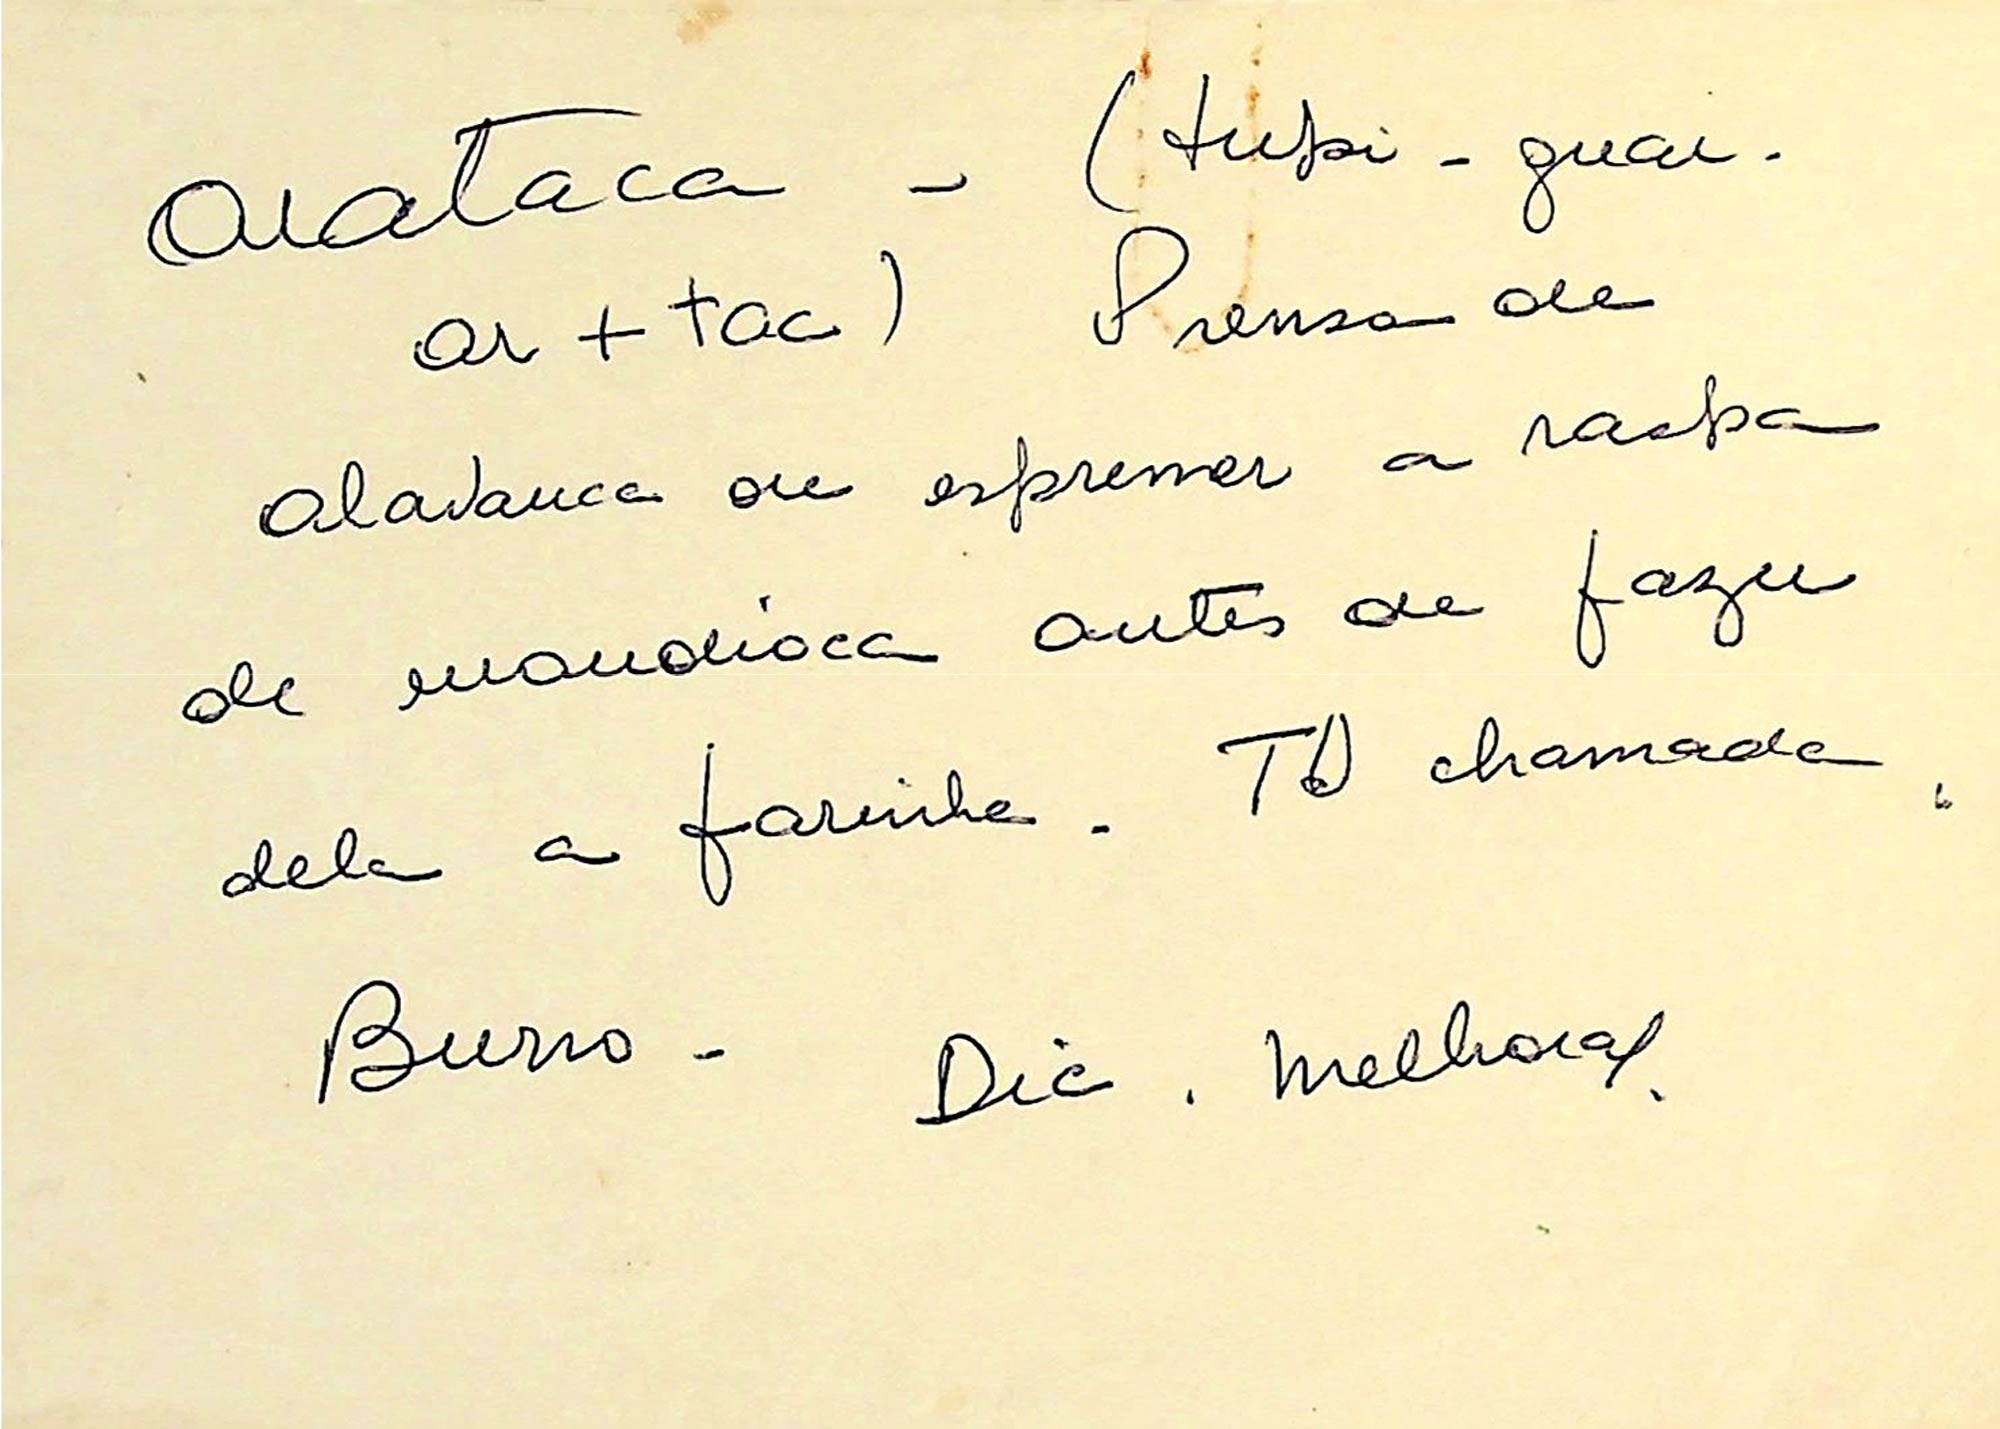 arataca - (tupi-guar.
ar + tac) Prensa de
alavanca ou espremer a raspa
de mandioca antes de fazer
dela a farinha. Tb chamada
Burro - Dic. Melhoral.